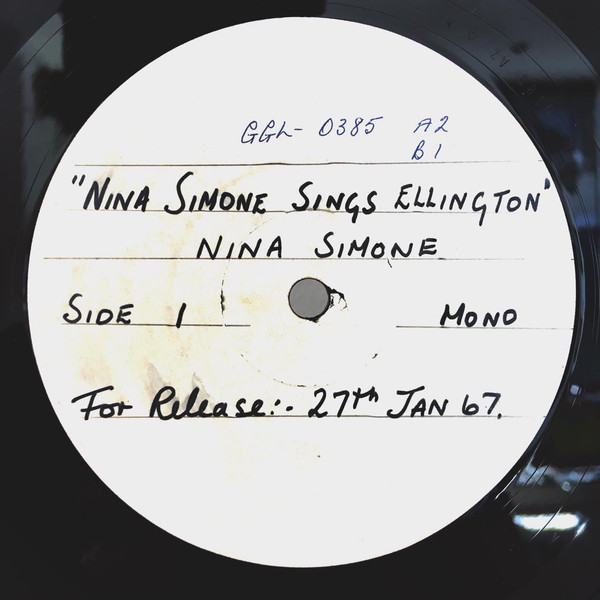 GGL- 0385 A2
B1
"NINA SIMONE SINGS ELLINGTON"
NINA SIMONE
SIDE 1 MONO
For Release:- 27th JAN 67.